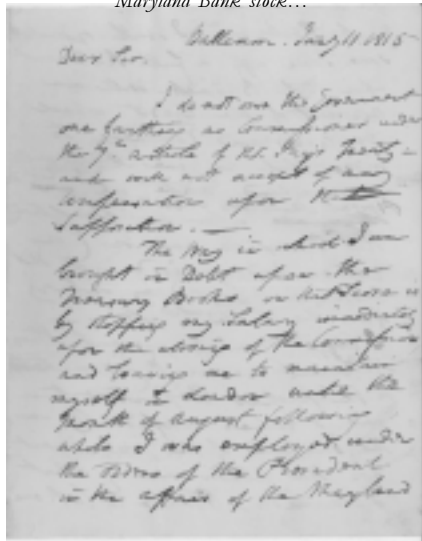 Maryland Bank stock...
Baltimore. Jany 11 1815
Dear Sir.
I do not owe the Government
one farthing as Commissioner under
the 7th article of Mr. Jay's Treaty –
and will not accept of any
upon
supposition. —
The way in which I am
brought in Debt upon the
Treasury Books, on that Score is
by stopping my Salary immediately
upon the closing of the Commission
and leaving me to maintain
myself in London until the
Month of August following
while I was employed under
the orders of the President
in the affair of the Maryland